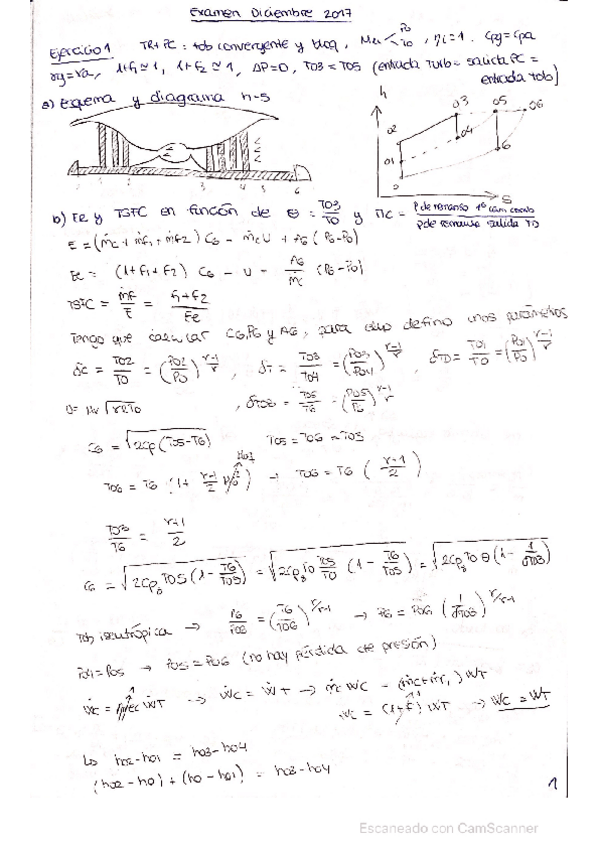 Examen Diciembre 2017
Ejercicio 1 TR+PC: tob convergente y bloq, M∞ < P0 T0, ηi=1. Cpg=Cpa
γg=γa, 1+f1≃1, 1+f2≃1, ΔP=0, T03=T05 (entrada turb = salida PC =
entrada tob)
a) Esquema y diagrama h-s
h
03 05 06
02
04
01
6
0
S
1 2 3 4 5 6
b) Fe y TSFC en función de θ = T03/T0 y πc = P de remanso 1º cám comb / P de remanso salida TD
E = (ṁc + ṁf1 + ṁf2) C6 - ṁc U + A6 (P6-P0)
Fe = (1+f1+f2) C6 - U - A6/ṁc (P6-P0)
TSFC = ṁf/E = f1+f2/Fe
Tengo que calcular C6, P6 y A6, para ello defino unos parámetros
δc = T02/T0 = (P02/P0)^γ-1/γ, δT = T03/T04 = (P03/P04)^γ-1/γ, δTD = T01/T0 = (P01/P0)^γ-1/γ
U = M∞√γRT0, δTOB = T05/T6 = (P05/P6)^γ-1/γ
C6 = √2cp(T05-T6) T05 = T06 = T03
T06 = T6 (1 + γ-1/2 M6²) → T06 = T6 (γ+1/2)
T03/T6 = γ+1/2
C6 = √2Cpg T05 (1 - T6/T05) = √2Cpg T0 T05/T0 (1 - T6/T05) = √2Cpg T0 θ (1 - 1/δTOB)
Tob isentrópica → P6/P06 = (T6/T06)^γ/γ-1 → P6 = P06 (1/δTOB)^γ/γ-1
P04 = P05 → P05 = P06 (no hay pérdida de presión)
Ẇc = ηmec ẆT → Ẇc = ẆT → ṁc Wc = (ṁc+ṁf1) WT
Wc = (1+f) WT → Wc = WT
↳ h02-h01 = h03-h04
(h02-h0) + (h0-h01) = h03-h04
1
Escaneado con CamScanner